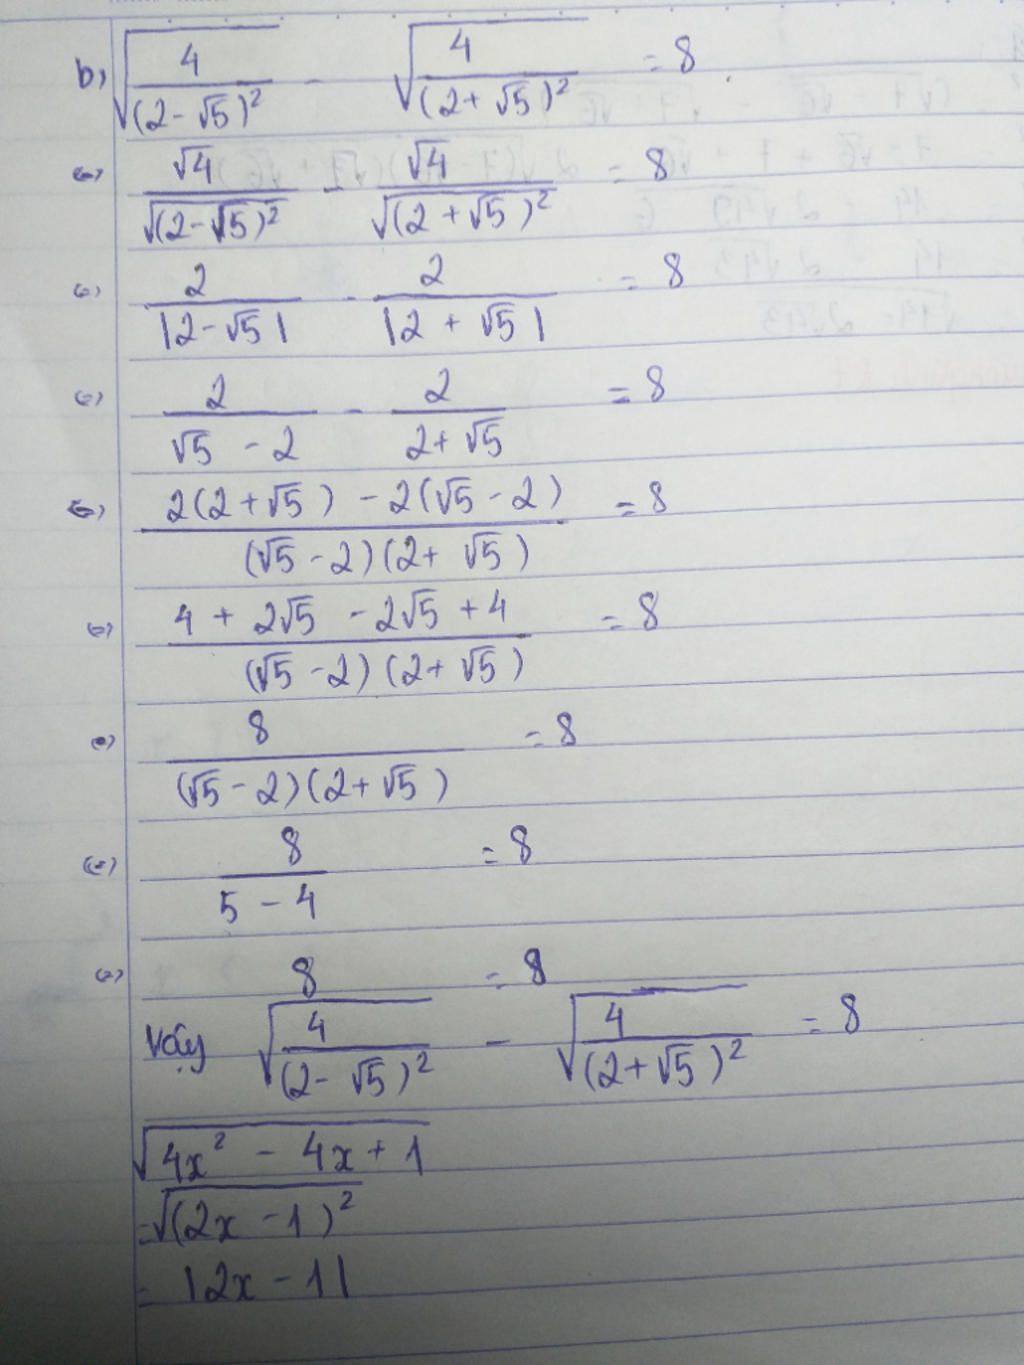 b) √(4/(2-√5)²) - √(4/(2+√5)²) = 8
<=> √4/√(2-√5)² - √4/√(2+√5)² = 8
<=> 2/|2-√5| - 2/|2+√5| = 8
<=> 2/(√5-2) - 2/(2+√5) = 8
<=> (2(2+√5) - 2(√5-2))/((√5-2)(2+√5)) = 8
<=> (4+2√5-2√5+4)/((√5-2)(2+√5)) = 8
<=> 8/((√5-2)(2+√5)) = 8
<=> 8/(5-4) = 8
<=> 8 = 8
Vậy √(4/(2-√5)²) - √(4/(2+√5)²) = 8
√(4x²-4x+1)
=√(2x-1)²
= |2x-1|